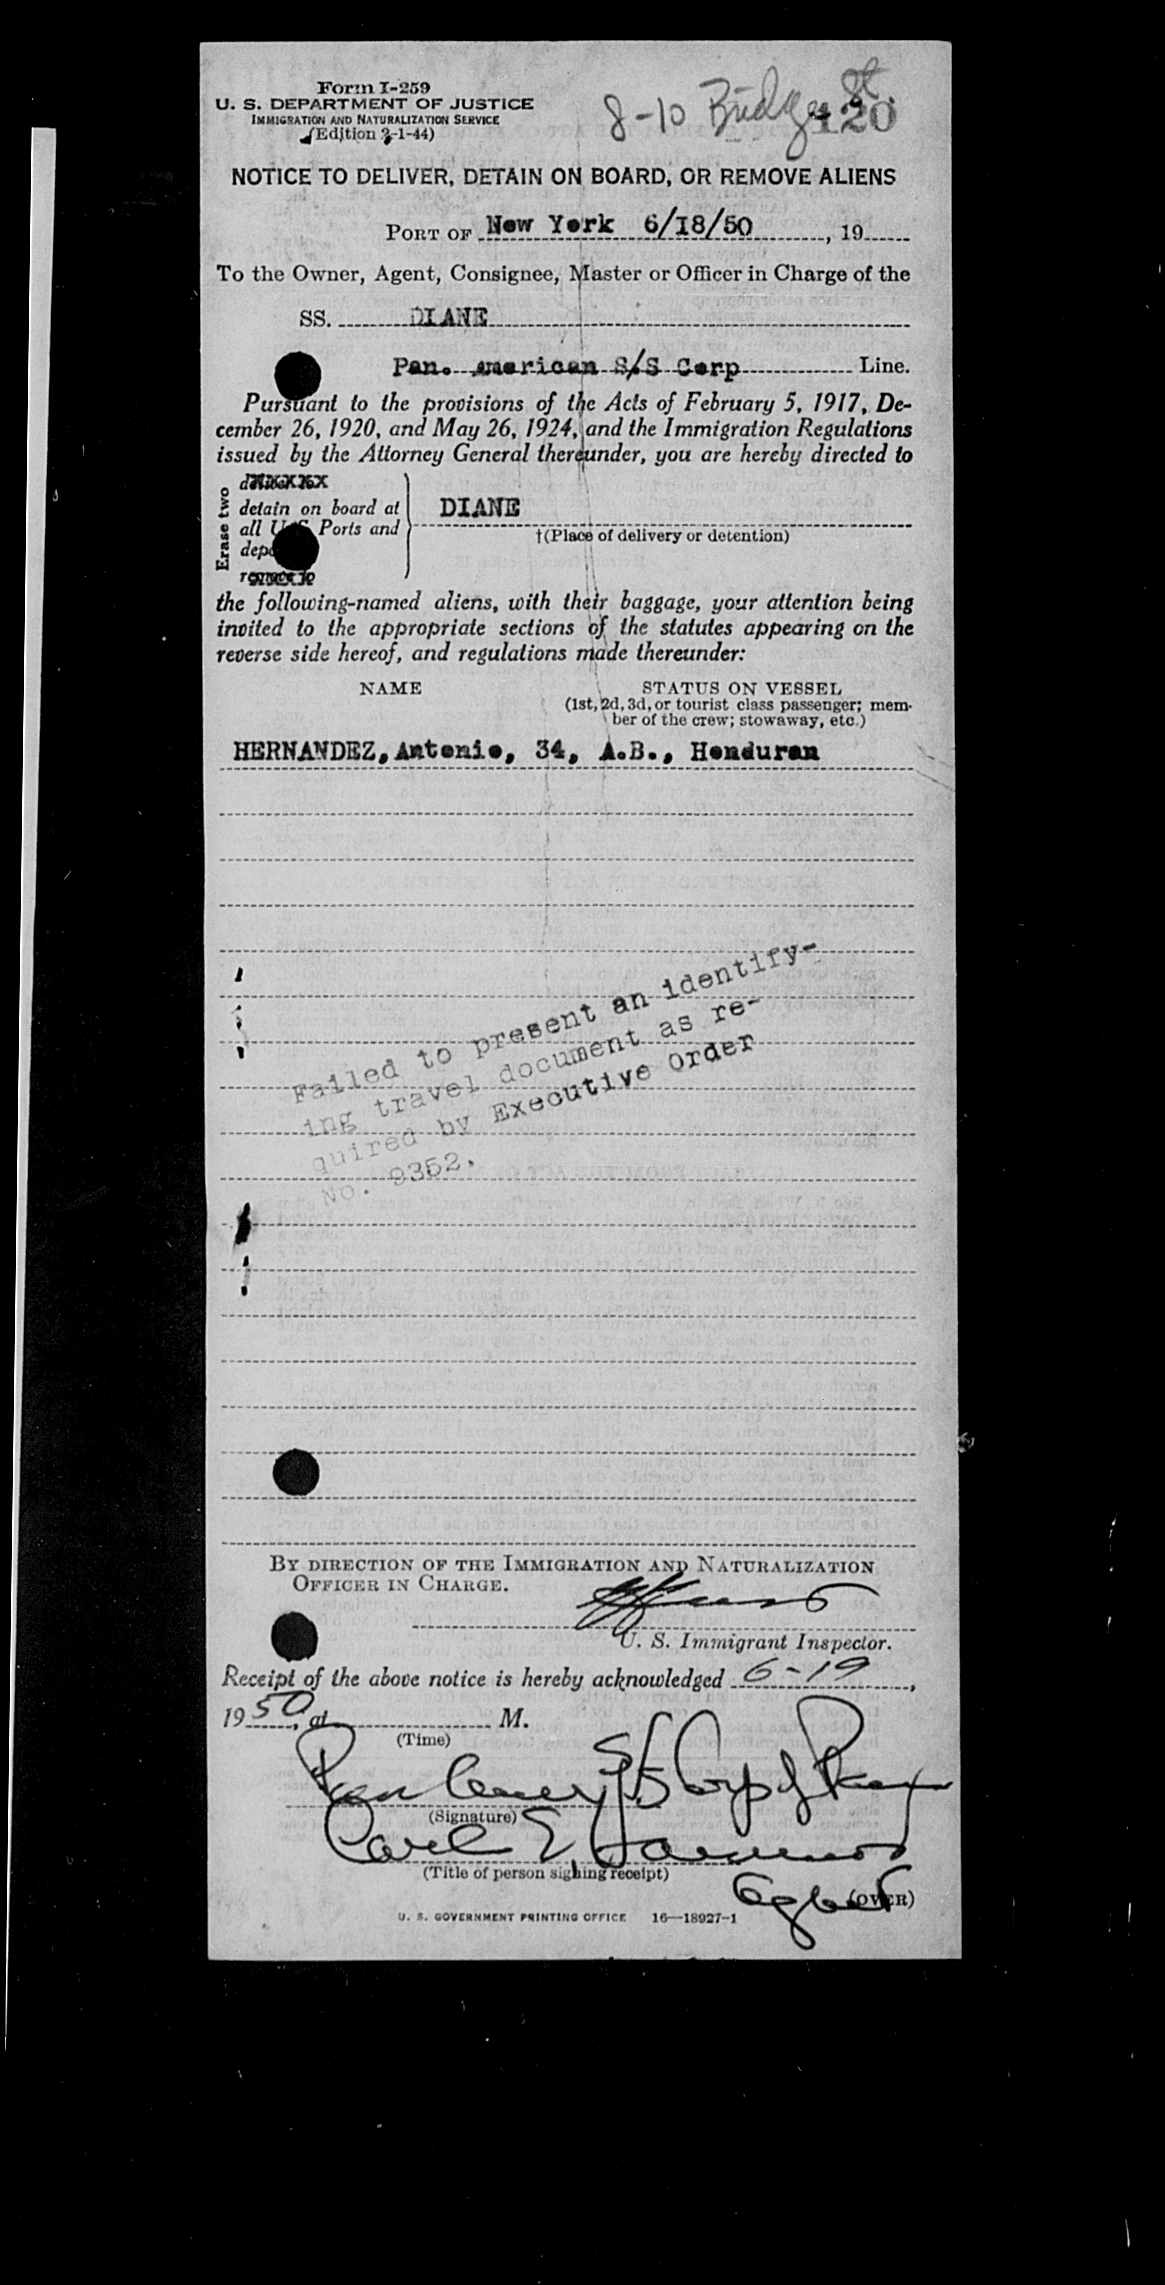 Form I-259
U. S. DEPARTMENT OF JUSTICE
IMMIGRATION AND NATURALIZATION SERVICE
(Edition 2-1-44)
8-10 Bridge St.
120
NOTICE TO DELIVER, DETAIN ON BOARD, OR REMOVE ALIENS
PORT OF New York 6/18/50, 19
To the Owner, Agent, Consignee, Master or Officer in Charge of the
SS. DIANE
Pan. American S/S Corp Line.
Pursuant to the provisions of the Acts of February 5, 1917, De-
cember 26, 1920, and May 26, 1924, and the Immigration Regulations
issued by the Attorney General thereunder, you are hereby directed to
Erase two
detain on board at
all U. S. Ports and
DIANE
†(Place of delivery or detention)
the following-named aliens, with their baggage, your attention being
invited to the appropriate sections of the statutes appearing on the
reverse side hereof, and regulations made thereunder:
NAME STATUS ON VESSEL
(1st, 2d, 3d, or tourist class passenger; mem-
ber of the crew; stowaway, etc.)
HERNANDEZ, Antonio, 34, A.B., Honduran
Failed to present an identify-
ing travel document as re-
quired by Executive Order
No. 9352.
BY DIRECTION OF THE IMMIGRATION AND NATURALIZATION
OFFICER IN CHARGE.
U. S. Immigrant Inspector.
Receipt of the above notice is hereby acknowledged 6-19,
1950, at M.
(Time)
Pan Amer S/S Corp of
(Signature)
Carl E.
(Title of person signing receipt)
Agent
(OVER)
U. S. GOVERNMENT PRINTING OFFICE 16—18927-1